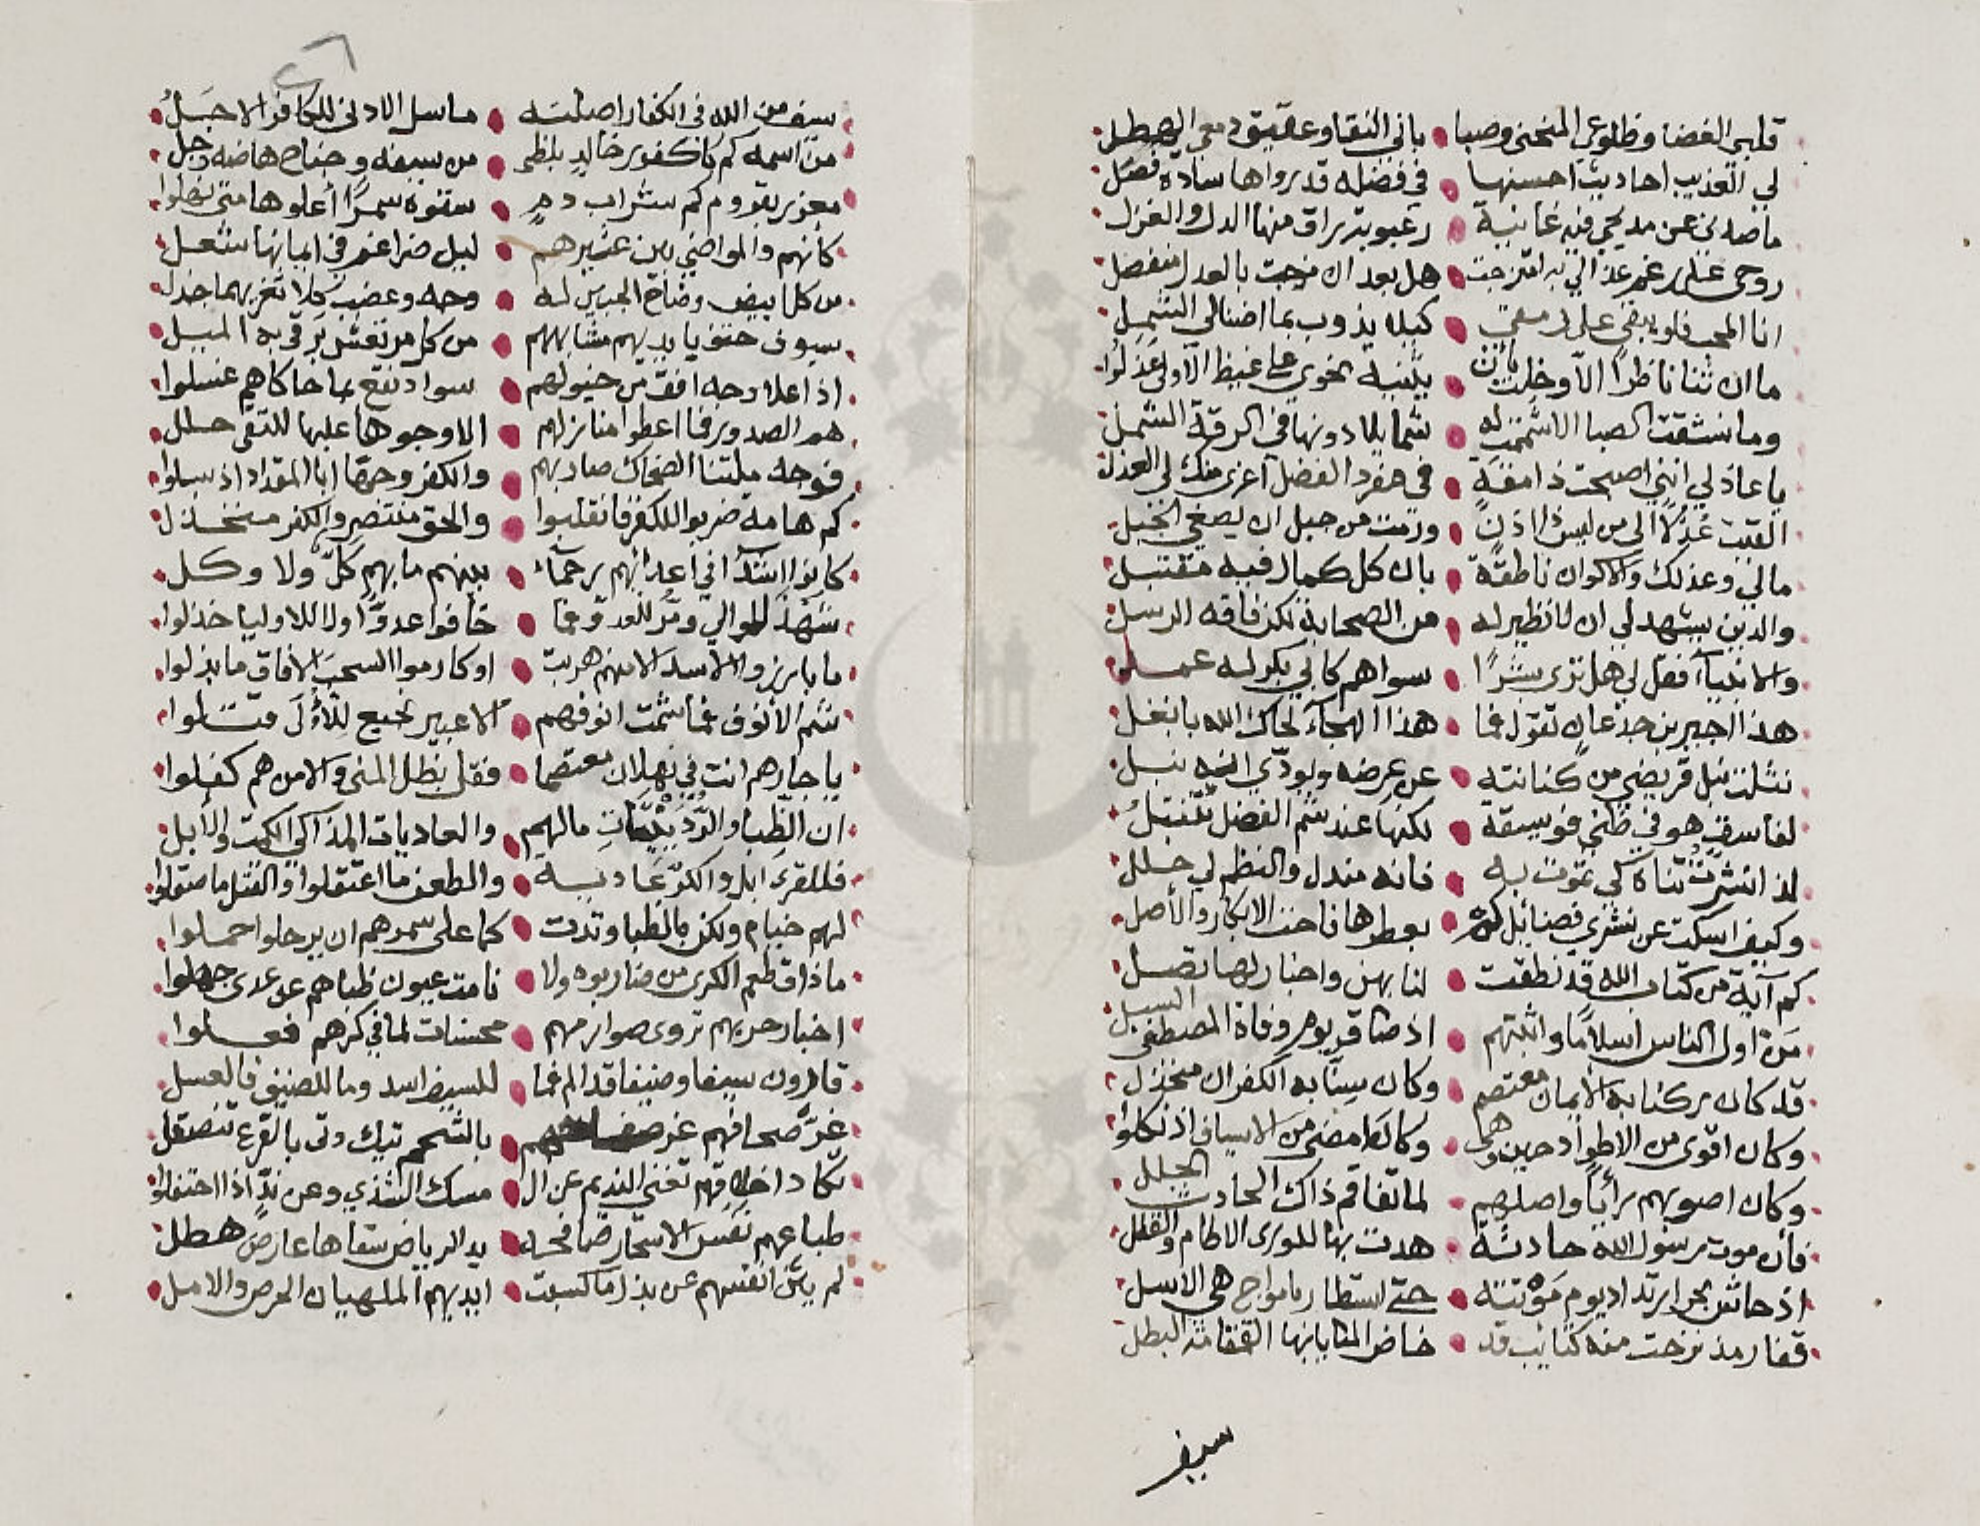 قلبي الغضا وضلوعي المنحنى وصبا • باني النقا وعقيق دمعي الهطل
لي العذيب احاديث احسنها • في فضله قد رواها سادة فضل
ما صدني عن مديحي فيه غانية • رعبوبة راق منها الدل والغزل
روحي على رغم عذالي به امتزجت • هل بعد ان مزجت بالعدل تنفصل
انا المحب فلو يبقى على رمقي • كبله يذوب بما اضنالي الثمل
ما ان ثنا ناظرا الا وخلت بان • يثنيه نحوي على غيظ الاولى عذلوا
وما نشقت الصبا الا شممت له • شمايلا دونها في الرقة الشمل
يا عاذلي انني اصبحت ذا مقة • في مفرد الفضل اغرى منك لي العذل
القيت عذلا الى من ليس ذا اذن • ورمت من جبل ان يصغي الجبل
مالي وعذلك والاكوان ناطقة • بان كل كمال فيه مقتبل
والدين يشهد لي ان لا نظير له • من الصحابة لكن فاقه الرسل
والانبياء فقل لي هل ترى بشرا • سواهم كابي بكر له عمل
هذا الجبير بن جدعان تقول فما • هذا الهجاء لحاك الله يا نغل
نثلت نبل قريضي من كنانته • عن عرضه وبودي انه نبل
لفاسق هو في ظني فويسقة • لكنها عند شم الفضل تنقتل
لذ انشرت ثناه كي تموت به • فانه مندل والنظم لي حلل
وكيف اسكت عن نشري فضائل • بعطرها فاحت الابكار والأصل
كم آية من كتاب الله قد نطقت • لنا بهن واخبار لها تصل
من اول الناس اسلاما واثبتهم • اذ ضاق يوم وفاة المصطفى السبل
قد كان ركنا به الايمان معتصم • وكان سيفا به الكفران منخذل
وكان اقوى من الاطواد حين وهى • وكان امضى من الاسياف اذ نكلوا
وكان اصوبهم رأيا واصلبهم • لما تفاقم ذاك الحادث الجلل
فان موت رسول الله حادثة • هدت بها للورى الاطام والقلل
اذ جاش بحر ارتداد يوم موتته • حتى استطار بامواج هي الاسل
فغار مذ نزحت منه كتايب قد • خاض المنايا بها القمقامة البطل
سيف
سيف من الله في الكفار اصلته • ما سل الا دنى للكافر الاجل
من اسمه كم كفور خالد بلظى • من سيفه وجناح هاضه وجل
معزز بقروم كم شراب دم • سقوه سمرا أعلوها متى نهلوا
كأنهم والمواضي بين عثيرهم • ليل ضراغم في ايمانها شعل
من كل ابيض وضاح الجبين له • وجه وعضب كلا تغريهما جذل
سيوف حتف بايديهم مشابههم • من كل مرتعش ترقى به الميل
اذا علا وجه افق من خيولهم • سواد نقع بما حاكاهم غسلوا
هم الصدور فما اعطوا منازلهم • الا وجوها عليها للتقى حلل
فوجه ملتنا الضحاك صار بهم • والكفر وجها ابا المقداد اذ سلوا
كم هامة ضربوا للكفر فانقلبوا • والحق منتصر والكفر منخذل
كانوا اشدا في اعدائهم رحماء • بينهم ما بهم كل ولا وكل
شهد الموالي ومر للعدو فما • خافوا عدوا ولا للاوليا خذلوا
ما بارزوا الاسد الا منهم هربت • او كارموا السحب الا فاق ما بذلوا
شم الأنوف فما شمت انوفهم • الا عبير نجيع للأولى قتلوا
يا جارهم انت في ثهلان معتصما • فقل بظل المنى والامن هم كفلوا
ان الظبا والرديبات ما لهم • والعاديات المذاكي الكمت والأبل
فللقرى ابل والكر عادية • والطعن ما اعتقلوا والقتل ما صقلوا
لهم خيام ولكن بالظبا وتدت • كما على سمرهم ان يرحلوا حملوا
ما ذاق طعم الكرى من ضاربوه ولا • نامت عيون ظباهم عن عدى جهلوا
اخبار حربهم تروى صوارمهم • محسنات لما في كرهم فعلوا
قارون سيفا وضيفا قد الم فما • للسيف اسد وما للضيف فالعسل
غر صحافهم غر • بالشحم تيك وتي بالقرع تنصقل
تكاد اخلاقهم تغني النديم عن ال • مسك الشذي وعن ند اذا احتفلوا
طباعهم نفس الاسحار صافحه • يد الرياض سقاها عارض هطل
لم يثن انفسهم عن بذل ما كسبت • ايديهم الملهيان الحرص والامل